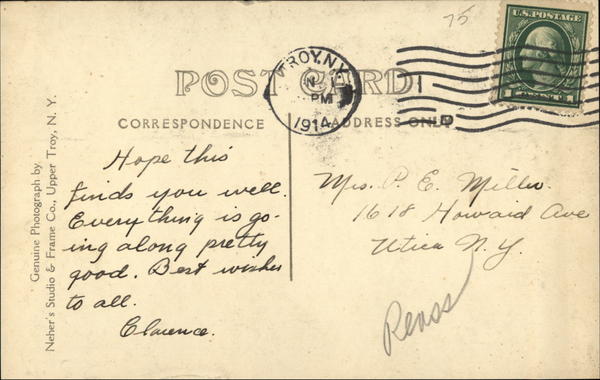 75
U.S. POSTAGE
TROY, N.Y.
PM
1914
POST CARD
CORRESPONDENCE
ADDRESS ONLY
Hope this
finds you well.
Everything is go-
ing along pretty
good. Best wishes
to all.
Clarence.
Mrs. P. E. Miller
1618 Howard Ave
Utica N.Y.
Genuine Photograph by
Neher's Studio & Frame Co., Upper Troy, N. Y.